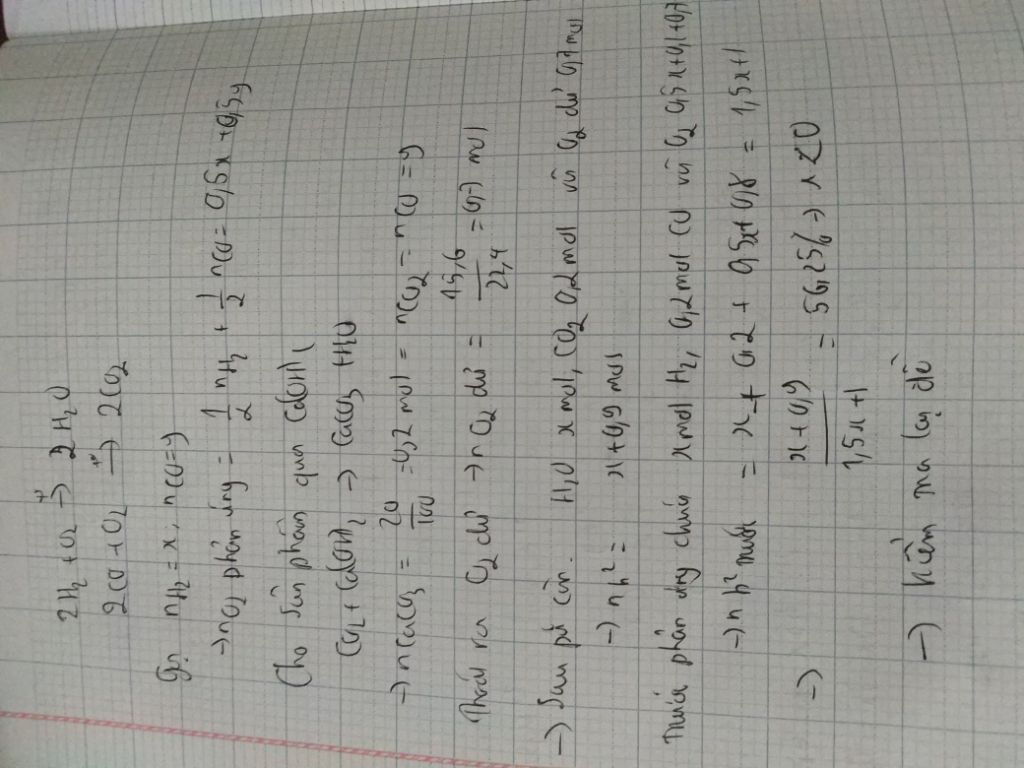 2H₂ + O₂ →(t°) 2H₂O
2CO + O₂ →(t°) 2CO₂
Gọi nH₂ = x, nCO = y
→ nO₂ phản ứng = 1/2 nH₂ + 1/2 nCO = 0,5x + 0,5y
Cho sản phẩm qua Ca(OH)₂
CO₂ + Ca(OH)₂ → CaCO₃ + H₂O
→ nCaCO₃ = 20/100 = 0,2 mol = nCO₂ = nCO = y
Thoát ra O₂ dư → nO₂ dư = 15,6/22,4 = 0,7 mol
→ Sau pứ còn. H₂O x mol, CO₂ 0,2 mol và O₂ dư 0,7 mol
→ n h² = x + 0,9 mol
Trước phản ứng chứa x mol H₂, 0,2 mol CO và O₂ 0,5x + 0,1 + 0,7
→ n h² trước = x + 0,2 + 0,5x + 0,8 = 1,5x + 1
→ x + 0,9 / 1,5x + 1 = 56,25% → x < 0
→ Kiểm tra lại đề